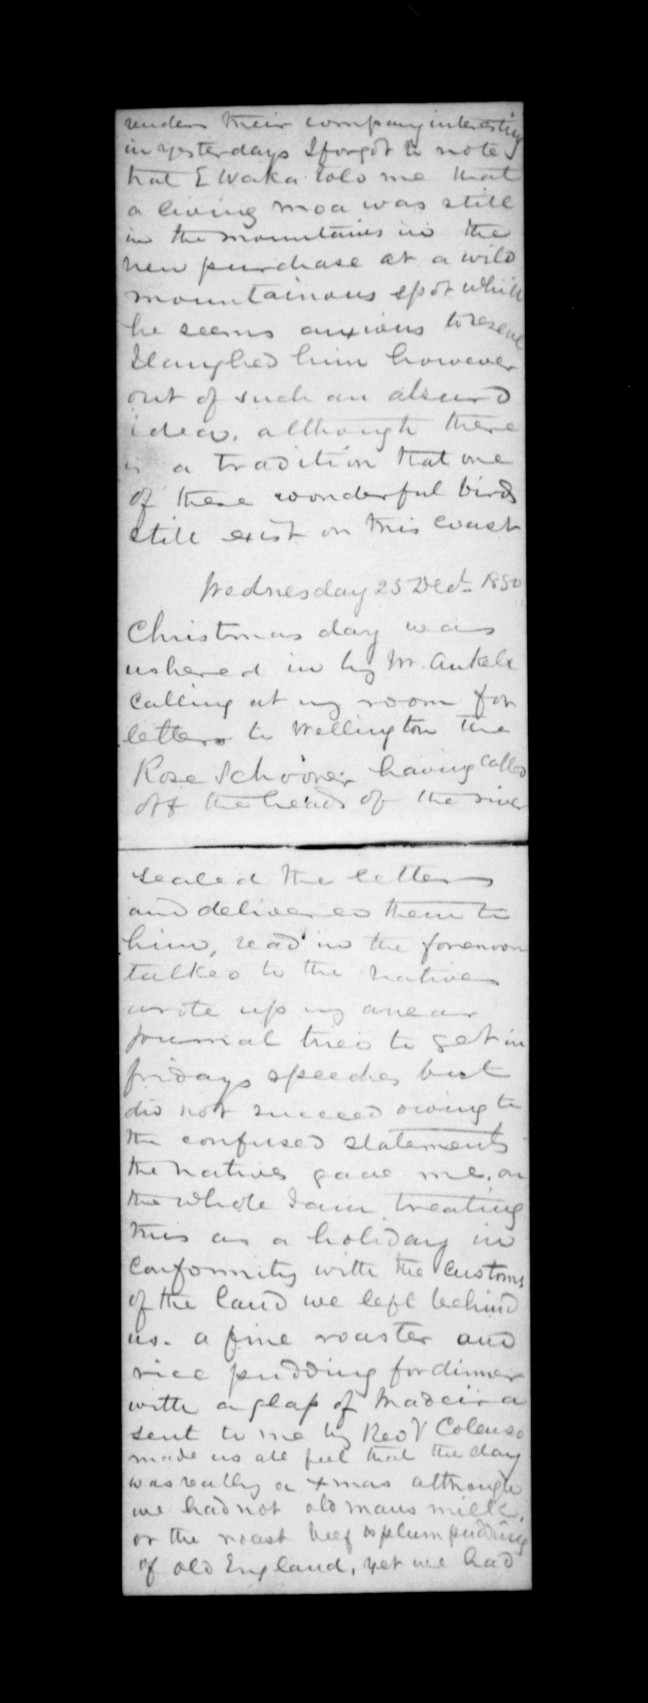 renders their company interesting
in yesterdays I forgot to note
that E Waka told me that
a living moa was still
in the mountains in the
new purchase at a wild
mountainous spot which
he seems anxious to reserve
I laughed him however
out of such an absurd
idea, although there
is a tradition that one
of these wonderful birds
still exist on this coast
Wednesday 25 Decr 1850
Christmas day was
ushered in by Mr.
calling at my room for
letters to Wellington the
Rose Schooner having called
off the heads of the river
sealed the letters
and delivered them to
him, read in the forenoon
talked to the natives
wrote up my
journal tried to get in
fridays speeches but
did not succeed owing to
the confused statements
the natives gave me, on
the whole I am treating
this as a holiday in
conformity with the customs
of the land we left behind
us. a fine roaster and
rice pudding for dinner
with a glass of Madeira
sent to me by Revd Colenso
made us all feel that the day
was really a Xmas although
we had not old mans milk,
or the roast beef & plum pudding
of old England, yet we had